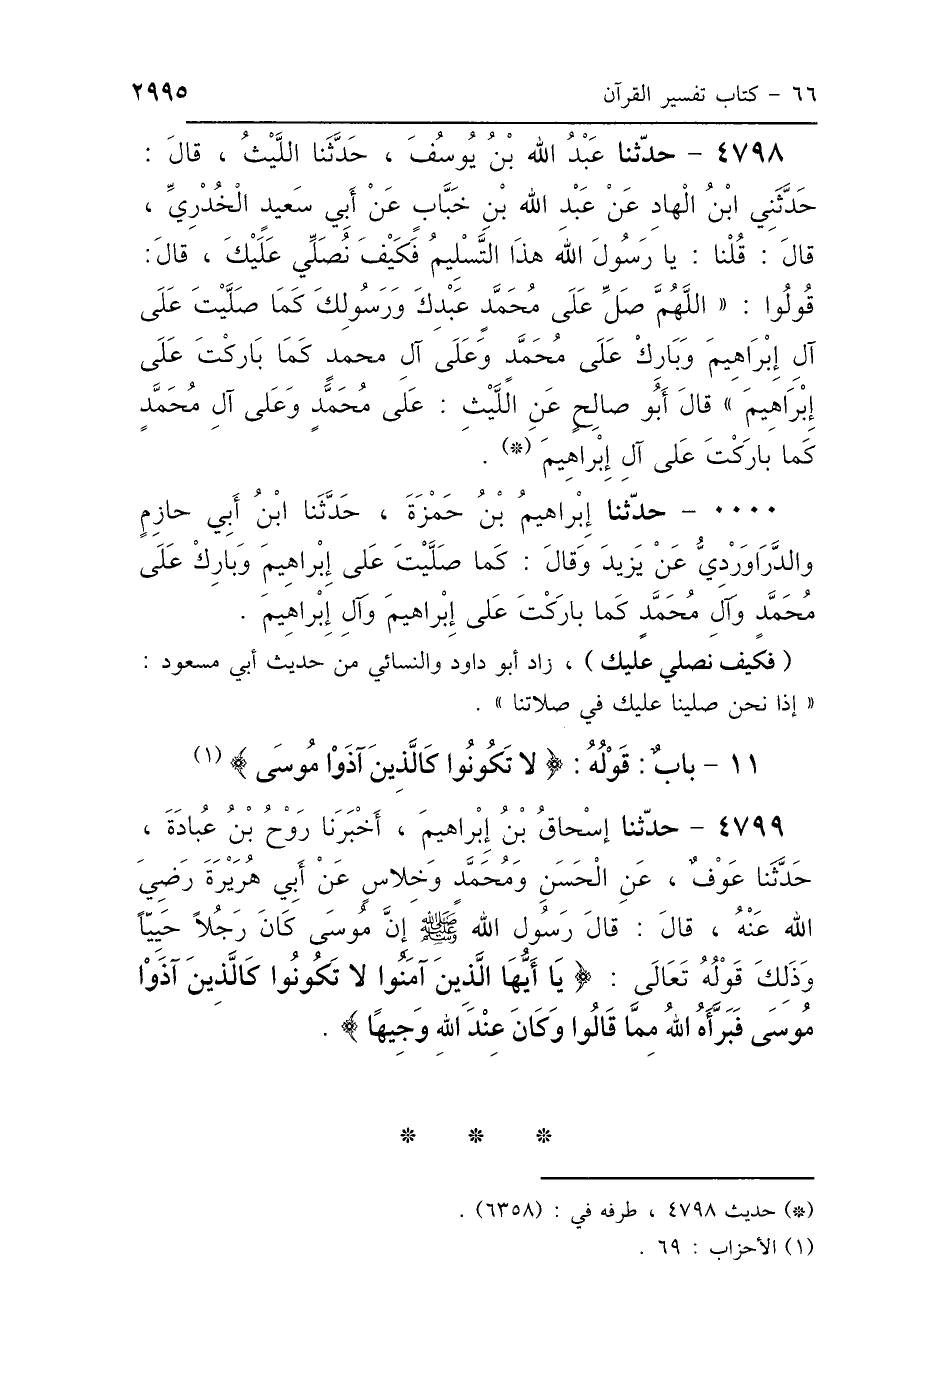 ٦٦ - كتاب تفسير القرآن ٢٩٩٥
٤٧٩٨ - حدّثنا عَبْدُ الله بْنُ يُوسُفَ ، حَدَّثَنا اللَّيْثُ ، قالَ :
حَدَّثَنِي ابْنُ الْهادِ عَنْ عَبْدِ الله بْنِ خَبَّابٍ عَنْ أَبِي سَعيدٍ الْخُدْرِيِّ ،
قالَ : قُلْنا : يا رَسُولَ الله هذَا التَّسْلِيمُ فَكَيْفَ نُصَلِّي عَلَيْكَ ، قالَ:
قُولُوا : « اللَّهُمَّ صَلِّ عَلَى مُحَمَّدٍ عَبْدِكَ وَرَسُولِكَ كَمَا صَلَّيْتَ عَلَى
آلِ إِبْرَاهِيمَ وَبَارِكْ عَلَى مُحَمَّدٍ وَعَلَى آلِ محمدٍ كَمَا بَاركْتَ عَلَى
إِبْرَاهِيمَ » قالَ أَبُو صالِحٍ عَنِ اللَّيْثِ : عَلَى مُحَمَّدٍ وَعَلى آلِ مُحَمَّدٍ
كَما بارَكْتَ عَلى آلِ إِبْراهِيمَ (*) .
٠٠٠٠ - حدّثنا إِبْراهيمُ بْنُ حَمْزَةَ ، حَدَّثَنا ابْنُ أَبِي حازِمٍ
والدَّرَاوَرْدِيُّ عَنْ يَزِيدَ وَقالَ : كَما صَلَّيْتَ عَلى إِبْراهِيمَ وَبارِكْ عَلَى
مُحَمَّدٍ وَآلِ مُحَمَّدٍ كَما بارَكْتَ عَلى إِبْراهِيمَ وَآلِ إِبْراهِيمَ .
( فكيف نصلي عليك ) ، زاد أبو داود والنسائي من حديث أبي مسعود :
« إذا نحن صلينا عليك في صلاتنا » .
١١ - بابٌ : قَوْلُهُ : ﴿ لا تَكُونُوا كَالَّذِينَ آذَوْا مُوسَى ﴾ (١)
٤٧٩٩ - حدّثنا إِسْحاقُ بْنُ إِبْراهيمَ ، أَخْبَرَنا رَوْحُ بْنُ عُبادَةَ ،
حَدَّثَنا عَوْفٌ ، عَنِ الْحَسَنِ وَمُحَمَّدٍ وَخِلاسٍ عَنْ أَبِي هُرَيْرَةَ رَضِيَ
الله عَنْهُ ، قالَ : قالَ رَسُول الله ﷺ إِنَّ مُوسَى كَانَ رَجُلاً حَيِيّاً
وَذَلِكَ قَوْلُهُ تَعَالَى : ﴿ يَا أَيُّهَا الَّذِينَ آمَنُوا لا تَكُونُوا كَالَّذِينَ آذَوْا
مُوسَى فَبَرَّأَهُ اللهُ مِمَّا قَالُوا وَكَانَ عِنْدَ اللهِ وَجِيهًا ﴾ .
* * *
(*) حديث ٤٧٩٨ ، طرفه في : (٦٣٥٨) .
(١) الأحزاب : ٦٩ .